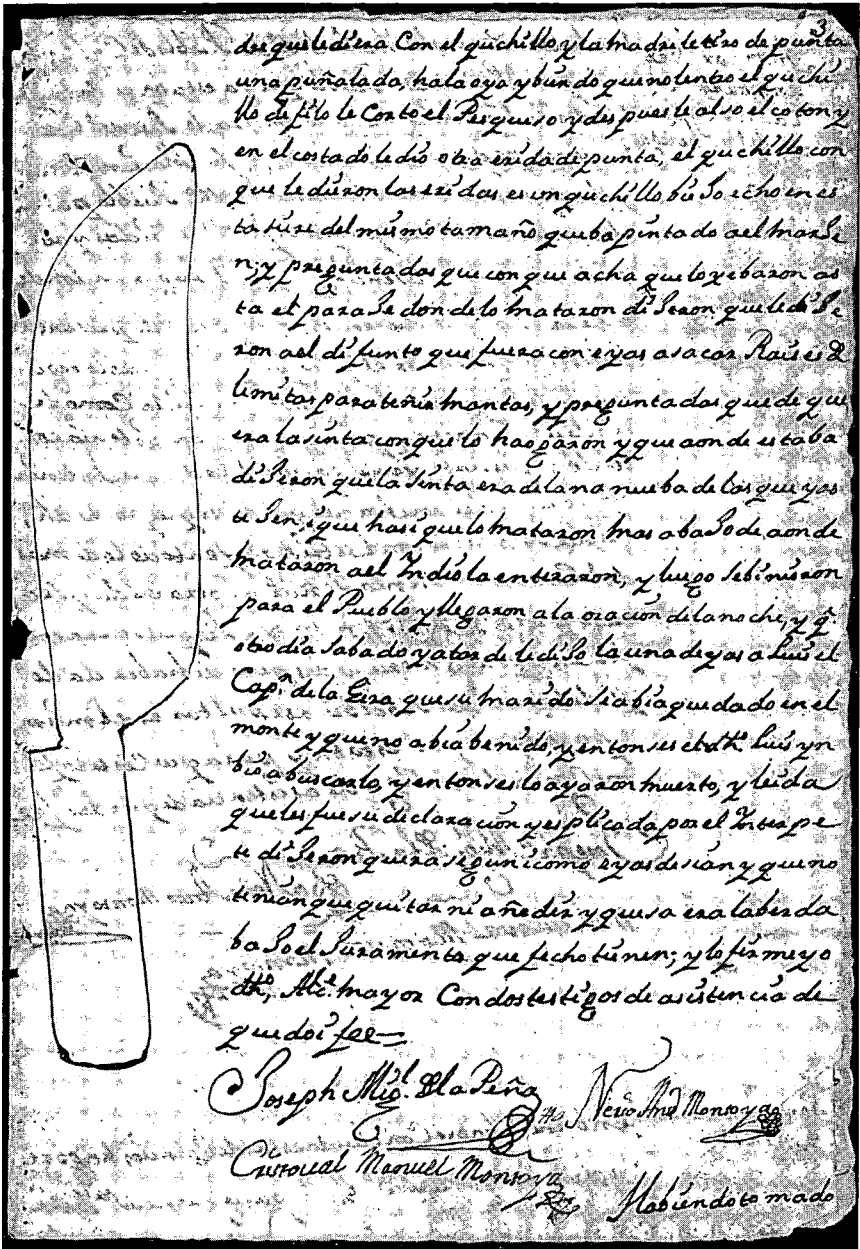 3
dre que le diera Con el quchillo y la madre le tiro de punta
una puñalada, hala oya y biendo que no lentro el quchi
llo de filo le Corto el Pesqueso y despues le also el coton y
en el costado le dio otra erida de punta, el quchillo con
que le dieron las eridas es un quchillo biejo echo en es
ta ture del mismo tamaño que ba pintado a el marje
n, y preguntadas que con que acha que lo yebaron as
ta el paraje donde lo mataron dijeron que le dije
ron a el difunto que fuera con eyas a sacar Raises de
limitas para teñir mantas, y preguntadas que de que
era la sinta con que lo haogaron y que aonde estaba
dijeron que la sinta era de lana nueba de las que yas
tejen, i que hasi que lo mataron mas abajo de aonde
mataron a el Indio la enteraron, y luego se binieron
para el Pueblo y llegaron a la oracion de la noche, y q.e
otro dia sabado ya tarde le dijo la una de yas a luis el
Cap.n de la Gera que su marido se abia quedado en el
monte y que no abia benido, y entonses el dho. luis yn
bio a buscarlo, y entonses lo ayaron muerto, y leida
que les fue su declaracion y esplicada por el Interpe
te dijeron que era segun i como eyas desian y que no
tenian que quitar ni añedir y que sa era la berda
bajo el Juramento que fecho tienen; y lo firme yo
dho, Alc.e mayor Con dos testigos de asistencia de
que doi fee
Joseph Mig.l de la Peña
Nerio Ant.o Montoya
Cristoual Manuel Montoya
Habiendo tomado